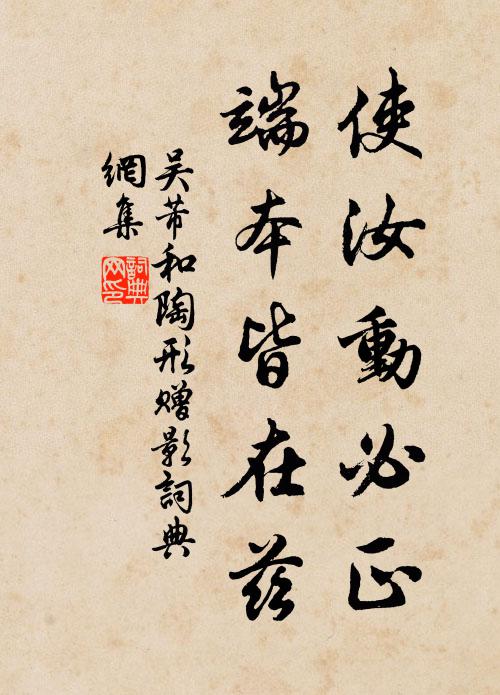 使汝動必正
端本皆在茲
吴芾和陶形贈影詞典
網集
詞典
网印